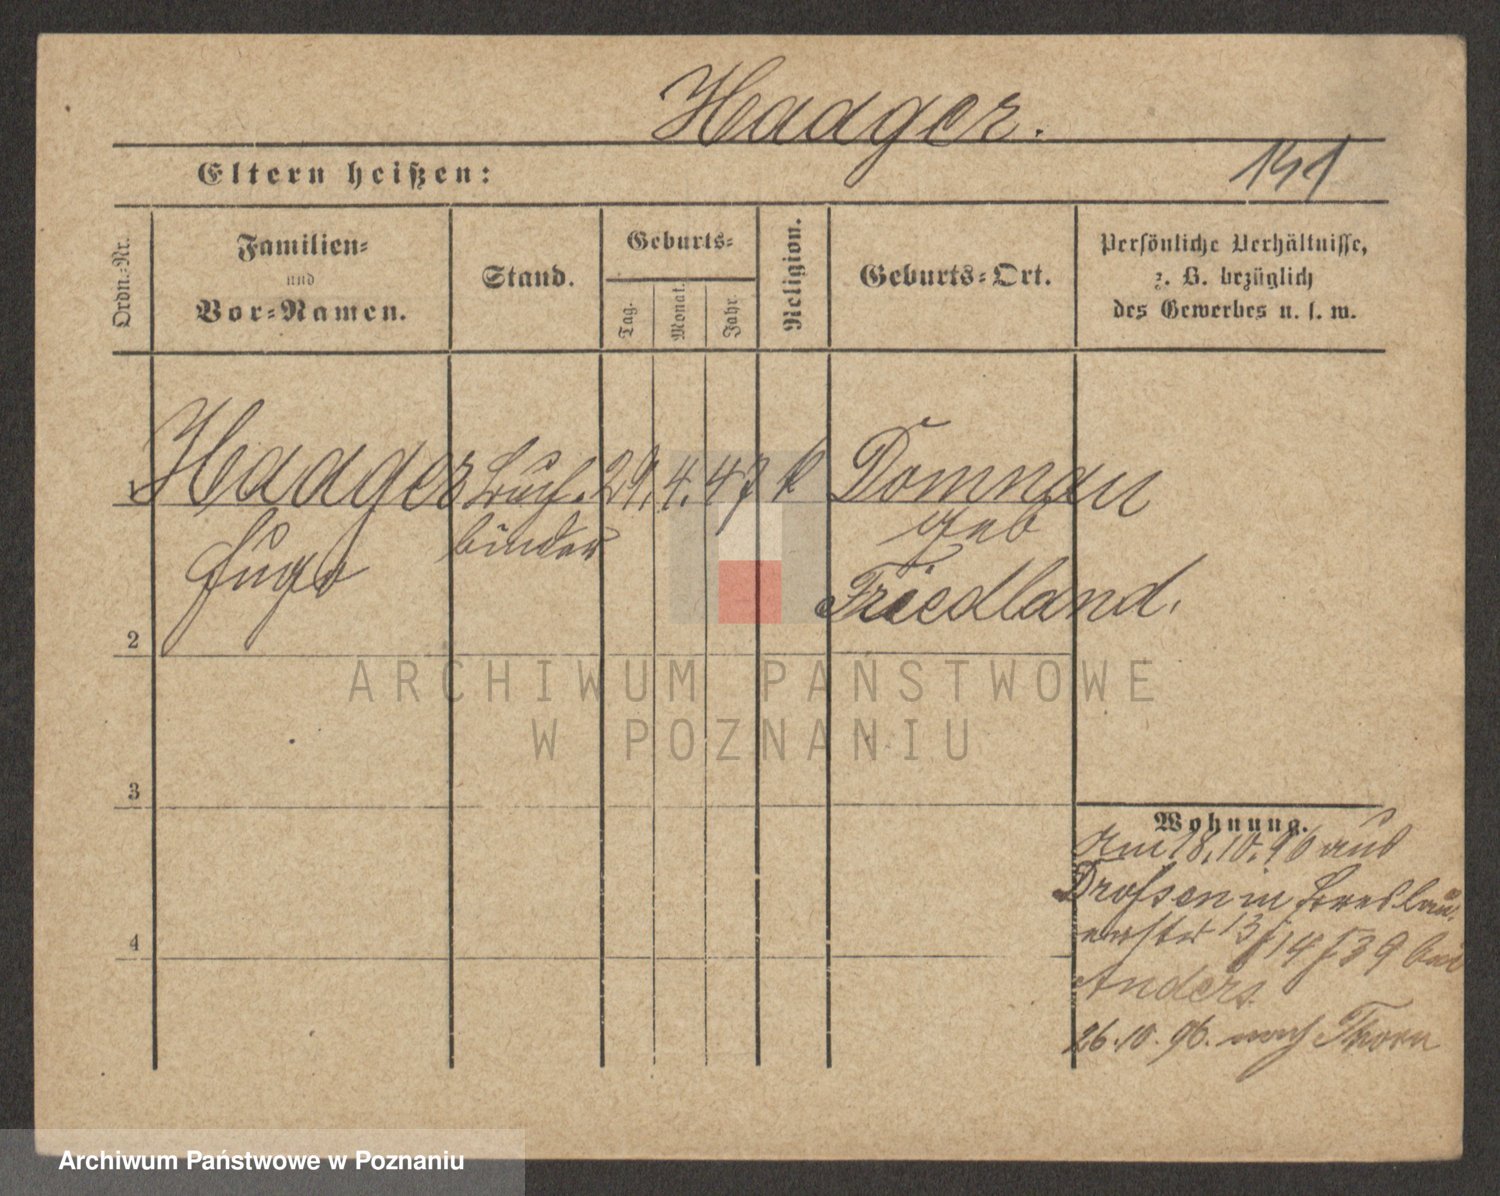 Hadger.
Eltern heißen:
141
Ordn.-Nr.
Familien-
und
Vor-Namen.
Stand.
Geburts-
Tag.
Monat.
Jahr
Religion.
Geburts-Ort.
Persönliche Verhältnisse,
z. B. bezüglich
des Gewerbes u. s. w.
1 Haadger Buch- 29. 4. 47 k Domnau
Hugo binder geb
Friedland.
2
3
4
Wohnung.
Am 18.10.96 aus
Drossen in Breslauer
13/14 39 bei
Anders
26.10.96. nach Thorn
ARCHIWUM PAŃSTWOWE
W POZNANIU
Archiwum Państwowe w Poznaniu